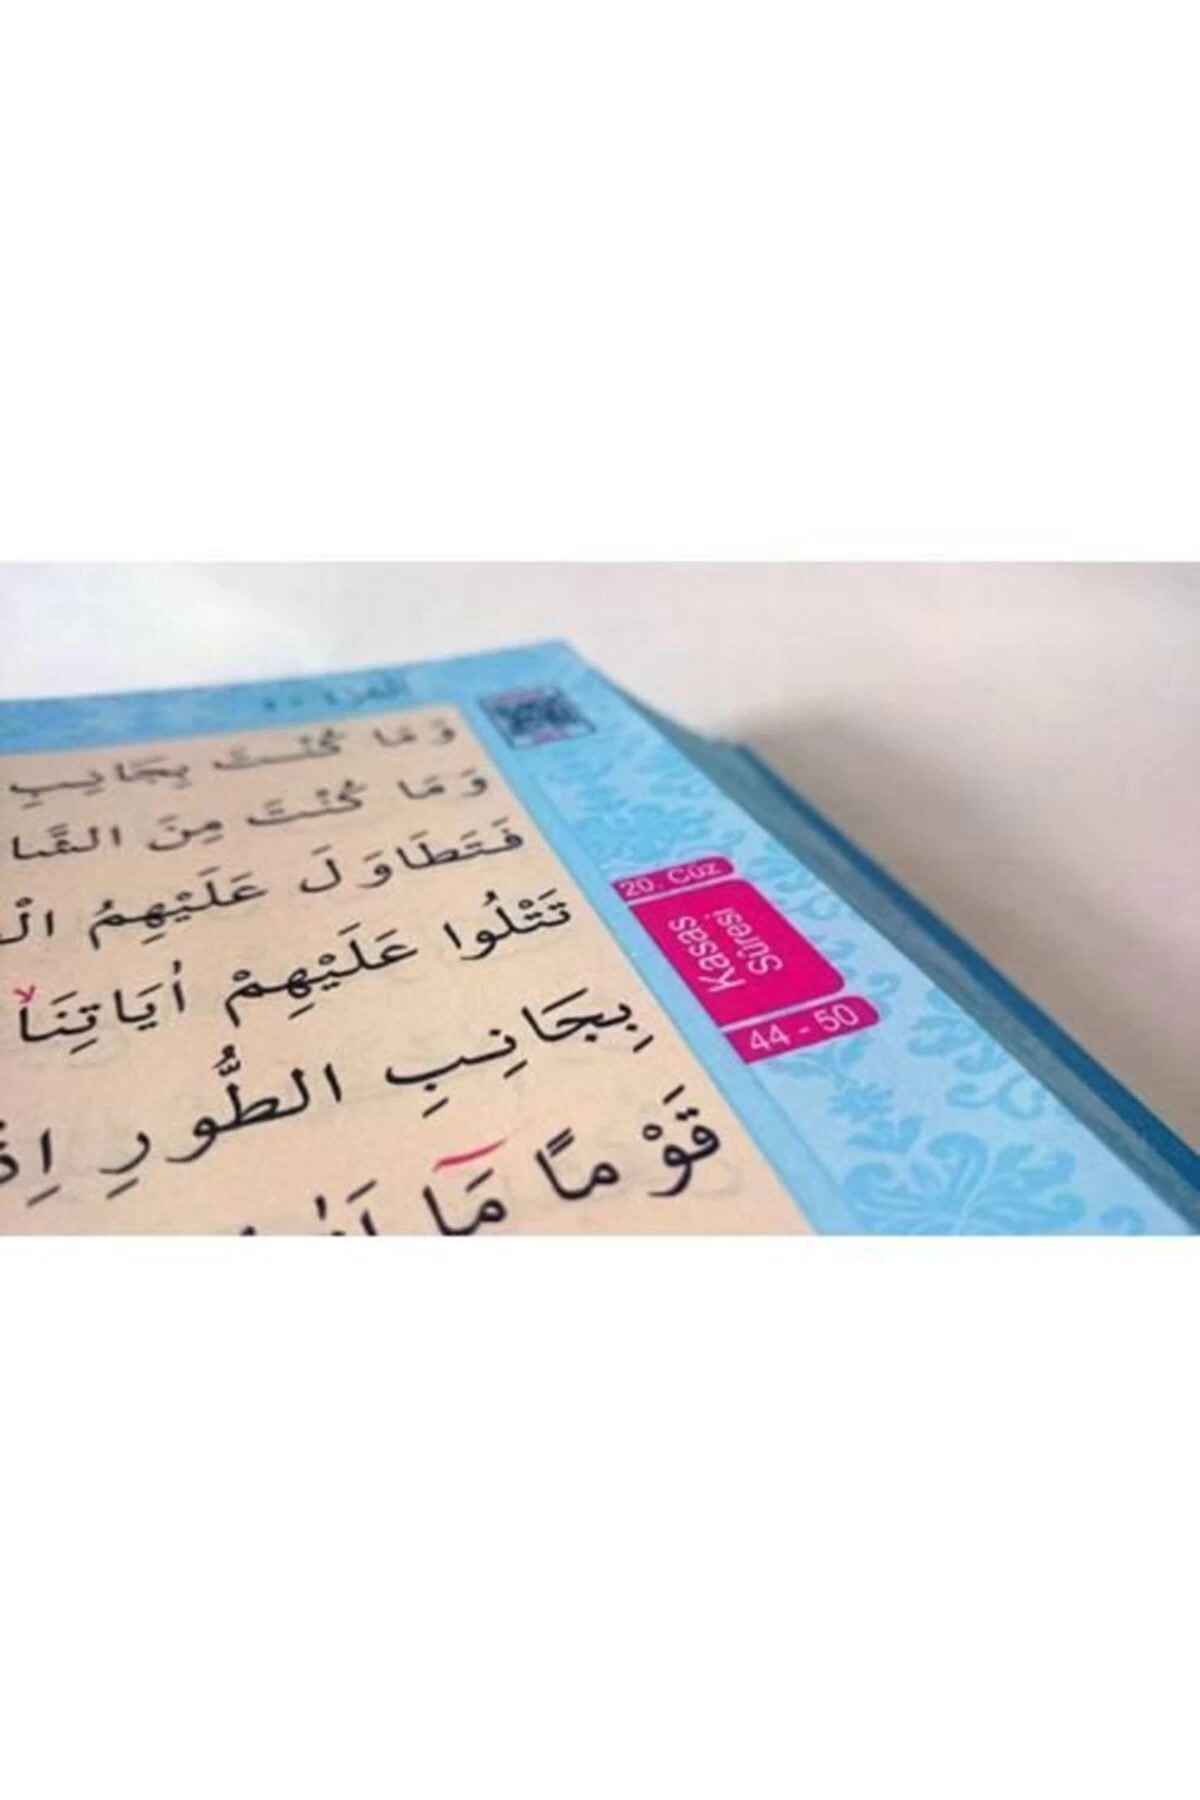 الجزء ٢٠
وَمَا كُنْتَ بِجَانِبِ
وَمَا كُنْتَ مِنَ الشَّا
فَتَطَاوَلَ عَلَيْهِمُ الْ
تَتْلُوا عَلَيْهِمْ اٰيَاتِنَاۙ
بِجَانِبِ الطُّورِ اِذْ
قَوْمًا مَٓا
20. Cüz
Kasas
Sûresi
44 - 50